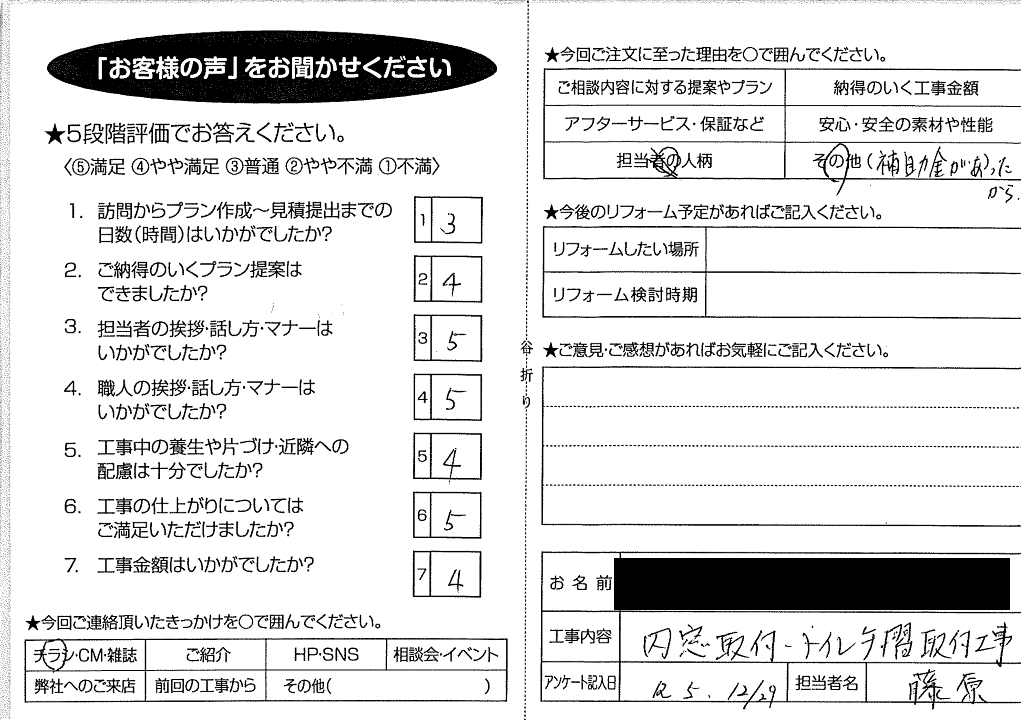 「お客様の声」をお聞かせください
★5段階評価でお答えください。
〈⑤満足 ④やや満足 ③普通 ②やや不満 ①不満〉
1. 訪問からプラン作成～見積提出までの
日数(時間)はいかがでしたか?
1 3
2. ご納得のいくプラン提案は
できましたか?
2 4
3. 担当者の挨拶・話し方・マナーは
いかがでしたか?
3 5
4. 職人の挨拶・話し方・マナーは
いかがでしたか?
4 5
5. 工事中の養生や片づけ・近隣への
配慮は十分でしたか?
5 4
6. 工事の仕上がりについては
ご満足いただけましたか?
6 5
7. 工事金額はいかがでしたか?
7 4
★今回ご連絡頂いたきっかけを○で囲んでください。
チラシ・CM・雑誌 ご紹介 HP・SNS 相談会・イベント
弊社へのご来店 前回の工事から その他( )
谷折り
★今回ご注文に至った理由を○で囲んでください。
ご相談内容に対する提案やプラン 納得のいく工事金額
アフターサービス・保証など 安心・安全の素材や性能
担当者の人柄 その他(補助金があった
から.
★今後のリフォーム予定があればご記入ください。
リフォームしたい場所
リフォーム検討時期
★ご意見・ご感想があればお気軽にご記入ください。
お名前
工事内容 内窓取付-トイレ手摺取付工事
アンケート記入日 R5.12/29 担当者名 藤原